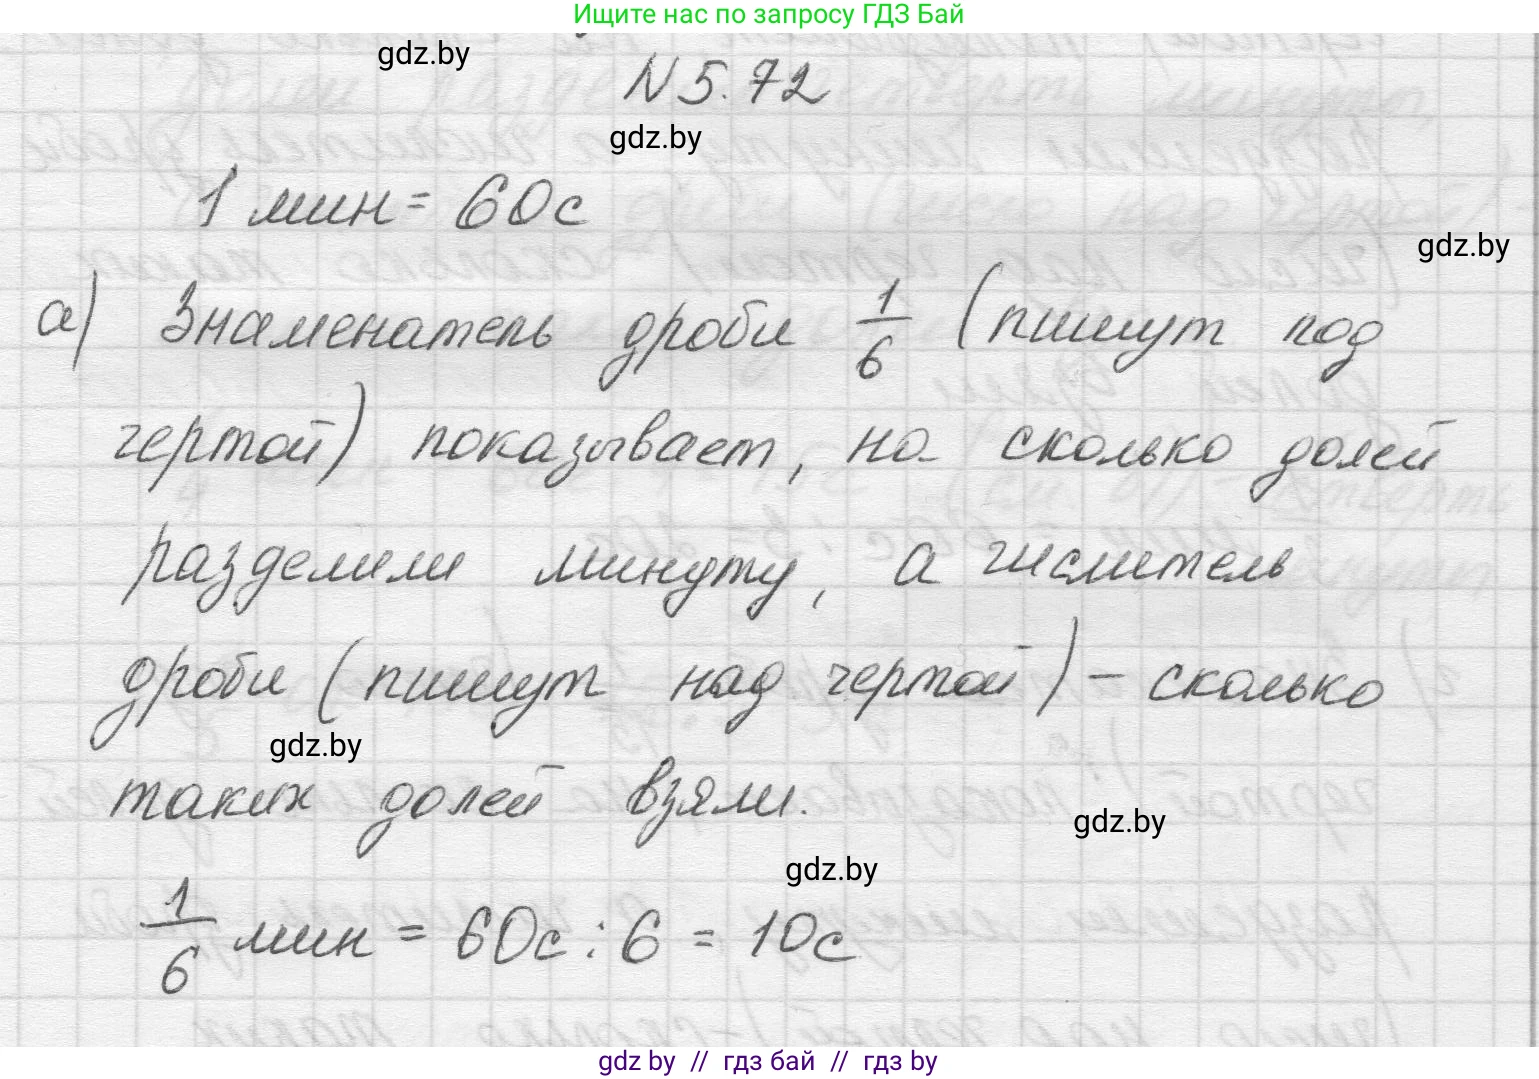 Ищите нас по запросу ГДЗ Бай
gdz.by
N 5.72
gdz.by
1 мин = 60с
gdz.by
а) Знаменатель дроби 1/6 (пишут под
чертой) показывает, на сколько долей
разделили минуту, а числитель
дроби (пишут над чертой) – сколько
gdz.by
таких долей взяли.
gdz.by
gdz.by
1/6 мин = 60с : 6 = 10с
gdz by // гдз бай // гдз by